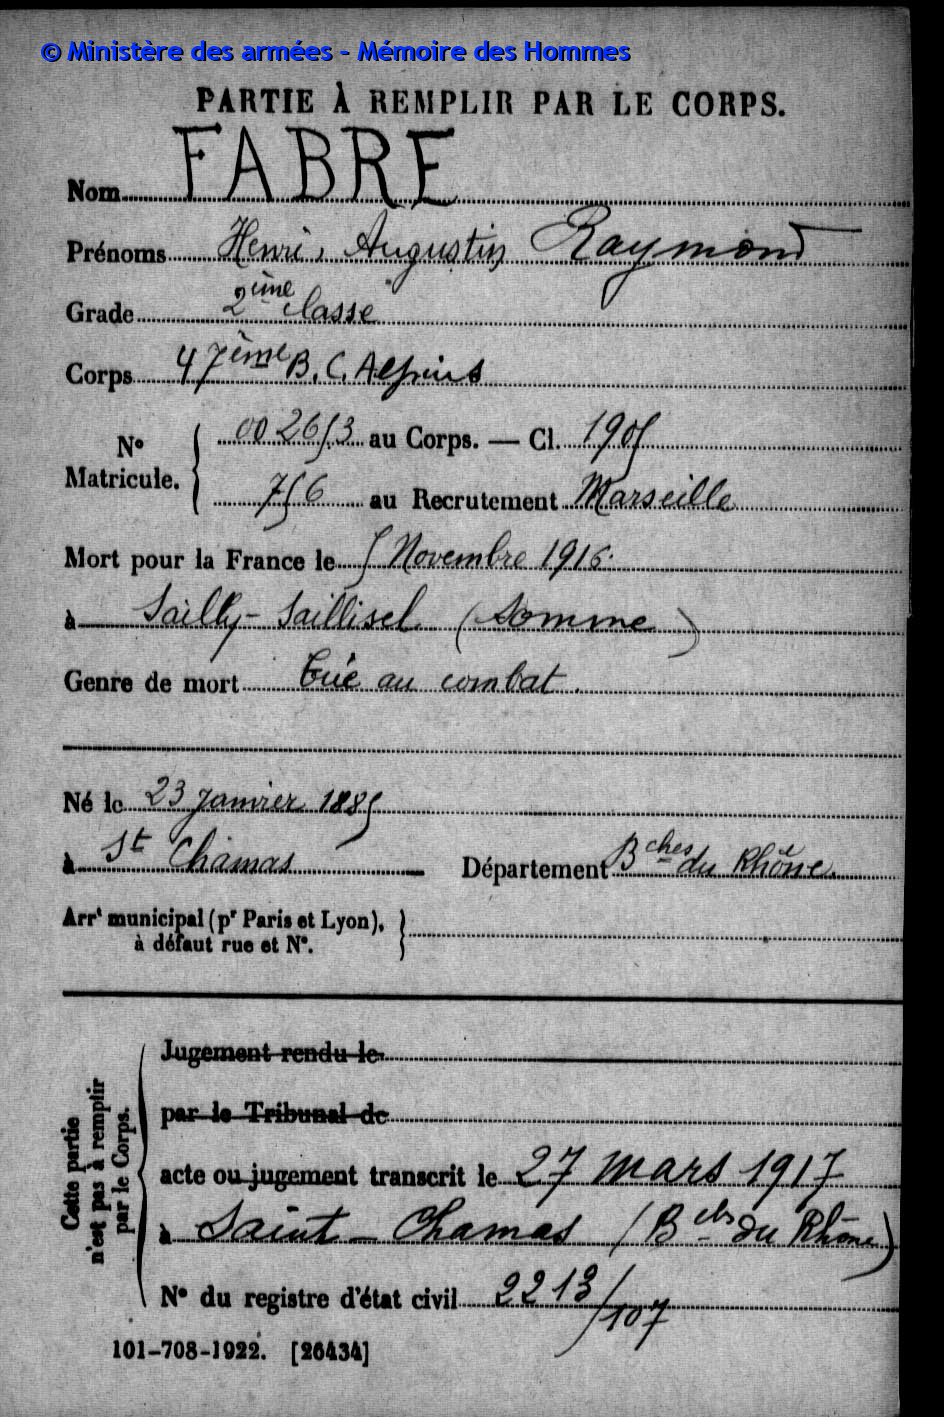 © Ministère des armées - Mémoire des Hommes
PARTIE À REMPLIR PAR LE CORPS.
Nom FABRE
Prénoms Henri, Augustin Raymond
Grade 2ème classe
Corps 47ème B.C. Alpins
N° Matricule. { 00 2653 au Corps. — Cl. 1905
756 au Recrutement Marseille
Mort pour la France le 5 Novembre 1916
à Sailly-Saillisel (Somme)
Genre de mort Tué au combat.
Né le 23 Janvier 1885
à St Chamas Département Bches du Rhône.
Arrt municipal (pr Paris et Lyon),
à défaut rue et N°.
Cette partie
n'est pas à remplir
par le Corps.
Jugement rendu le
par le Tribunal de
acte ou jugement transcrit le 27 mars 1917
à Saint-Chamas (Bches du Rhône)
N° du registre d'état civil 2213/107
101-708-1922. [26434]